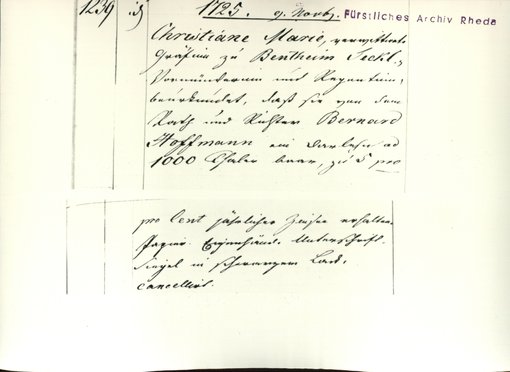 1239 1725. 9. Novbr. Fürstliches Archiv Rheda
Christiane Marie, verwittwete
Gräfin zu Bentheim Teckl.,
Vormünderin und Regentin,
beurkundet, daß sie von dem
Rath und Richter Bernard
Hoffmann ein Darlehn ad
1000 Thaler baar, zu 5 pro
pro Cent jährlicher Zinsen erhalten
Papier. Eigenhänd. Unterschrift.
Siegel in schwarzem Lack.
cancellirt.